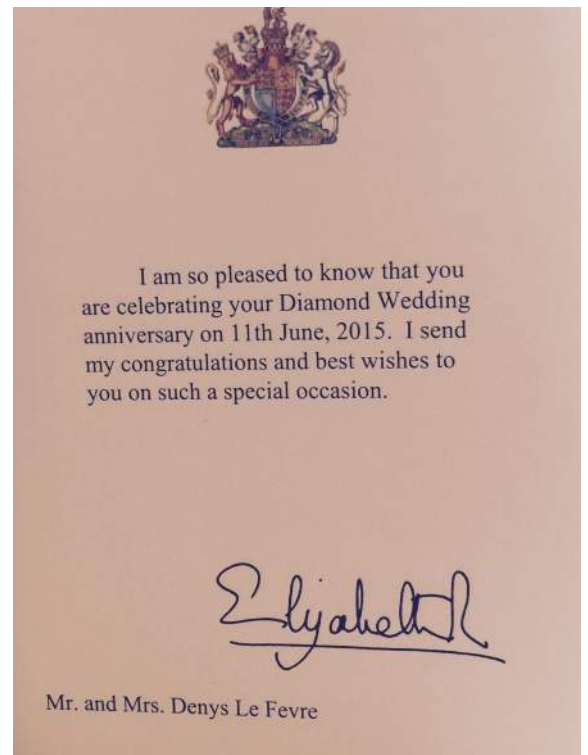 I am so pleased to know that you
are celebrating your Diamond Wedding
anniversary on 11th June, 2015.  I send
my congratulations and best wishes to
you on such a special occasion.
Elizabeth R
Mr. and Mrs. Denys Le Fevre